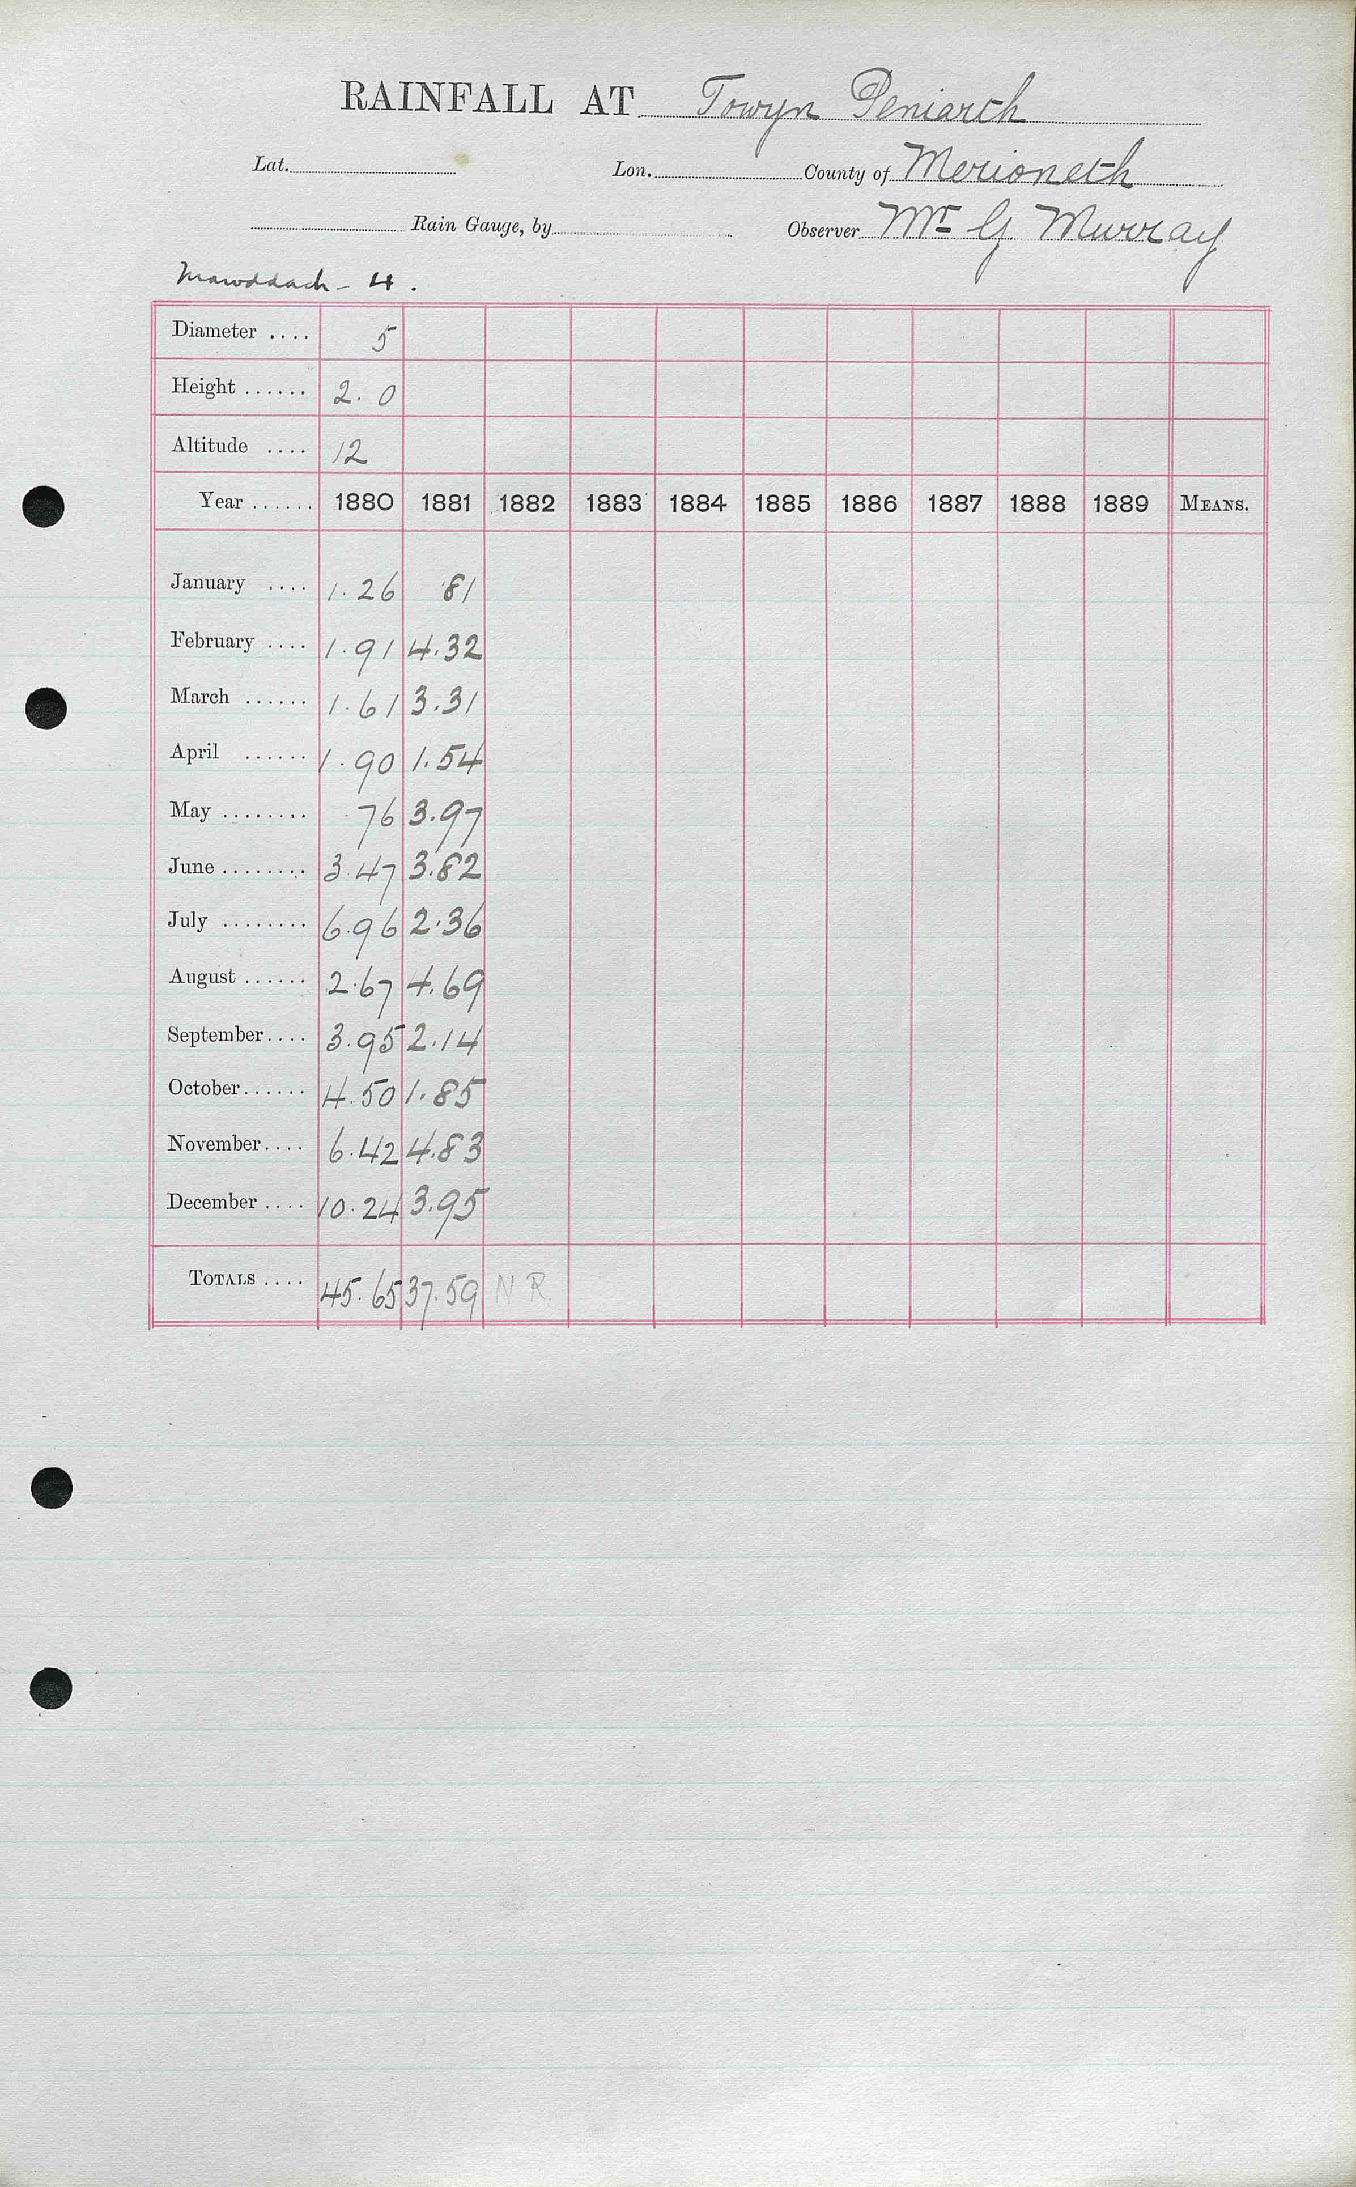 RAINFALL AT Towyn Peniarth
Lat. Lon. County of Merioneth
Rain Gauge, by Observer Mr G Murray
Mawddach - 4.
Diameter .... 5
Height ...... 2. 0
Altitude .... 12
Year ...... 1880 1881 1882 1883 1884 1885 1886 1887 1888 1889 MEANS.
January .... 1.26 .81
February .... 1.91 4.32
March ...... 1.61 3.31
April ...... 1.90 1.54
May ........ .76 3.97
June ........ 3.47 3.82
July ........ 6.96 2.36
August ...... 2.67 4.69
September.... 3.95 2.14
October...... 4.50 1.85
November.... 6.42 4.83
December .... 10.24 3.95
TOTALS .... 45.65 37.59 N R.